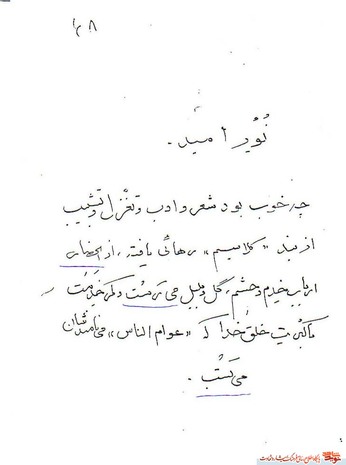 ۲۸
نُوْیدِ امید.
چه خوب بود شعر و ادب و تغزل و تشبیب
از بند "کلاسیسم" رهائی یافته، از
ارباب خدم و حشم، گل و بلبل می رَست و کمر خدمت
باکثریت خلق خُدا که "عوام الناس" می نامندشان
می بَست.